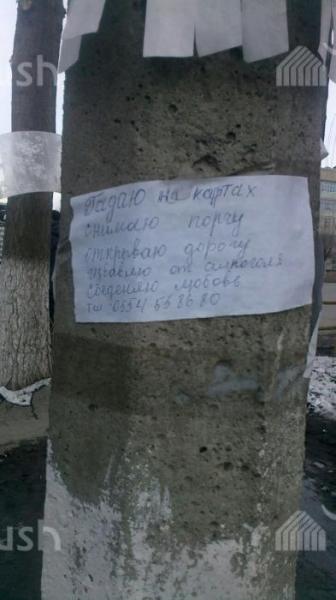 ush
ush
Гадаю на картах
снимаю порчу
открываю дорогу
избавлю от алкоголя
соединяю любовь
тел 0554 55 86 80
ush